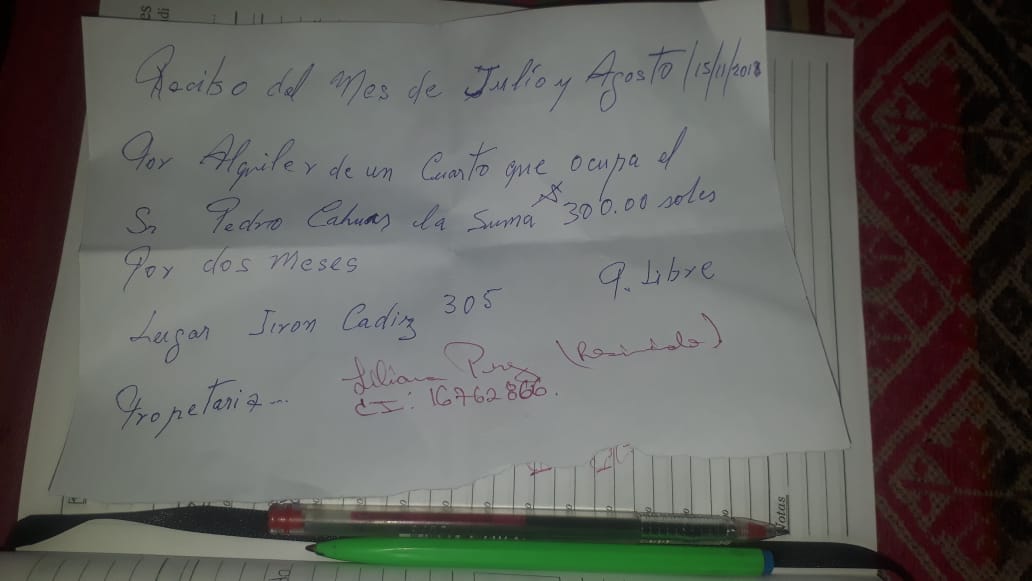 Recibo del Mes de Julio y Agosto /15/11/2018
Por Alquiler de un Cuarto que ocupa el
Sr Pedro Cahuas la Suma $ 300.00 soles
Por dos meses
Lugar Jiron Cadiz 305 P. Libre
Propetaria...
Liliana Perez (Recibido)
CI: 16762866.
Notas